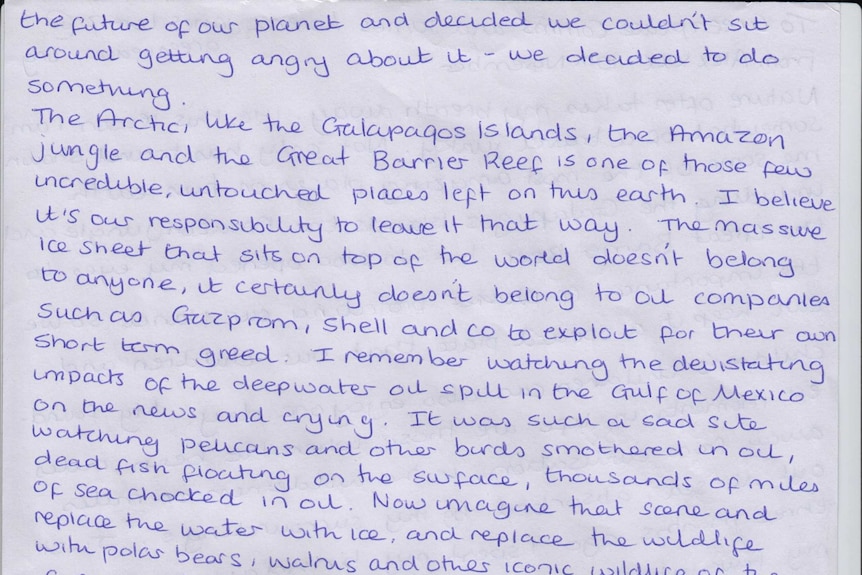 the future of our planet and decided we couldn't sit
around getting angry about it - we decided to do
something.
The Arctic, like the Galapagos Islands, the Amazon
jungle and the Great Barrier Reef is one of those few
incredible, untouched places left on this earth. I believe
it's our responsibility to leave it that way. The massive
ice sheet that sits on top of the world doesn't belong
to anyone, it certainly doesn't belong to oil companies
such as Gazprom, Shell and co to exploit for their own
short term greed. I remember watching the devistating
impacts of the deepwater oil spill in the Gulf of Mexico
on the news and crying. It was such a sad site
watching pelicans and other birds smothered in oil,
dead fish floating on the surface, thousands of miles
of sea chocked in oil. Now imagine that scene and
replace the water with ice, and replace the wildlife
with polar bears, walrus and other iconic wildlife of the